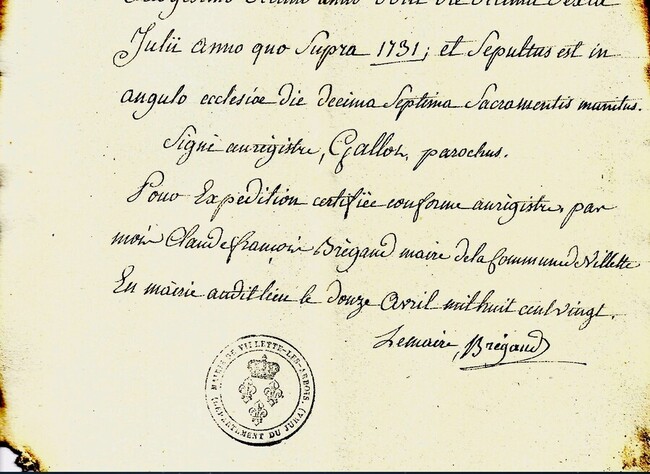 anno die decima sexta
Julii anno quo supra 1731; et Sepultus est in
angulo ecclesiæ die decima Septima Sacramentis munitus.
Signé au régistre, Gallos, parochus.
Pour Expédition certifiée conforme au régistre, par
moi Claude françois Brégand maire de la Commune de Villette
En mairie audit lieu le douze Avril mil huit cent vingt.
Le maire, Brégand
MAIRIE DE VILLETTE-LES-ARBOIS.
(DÉPARTEMENT DU JURA)